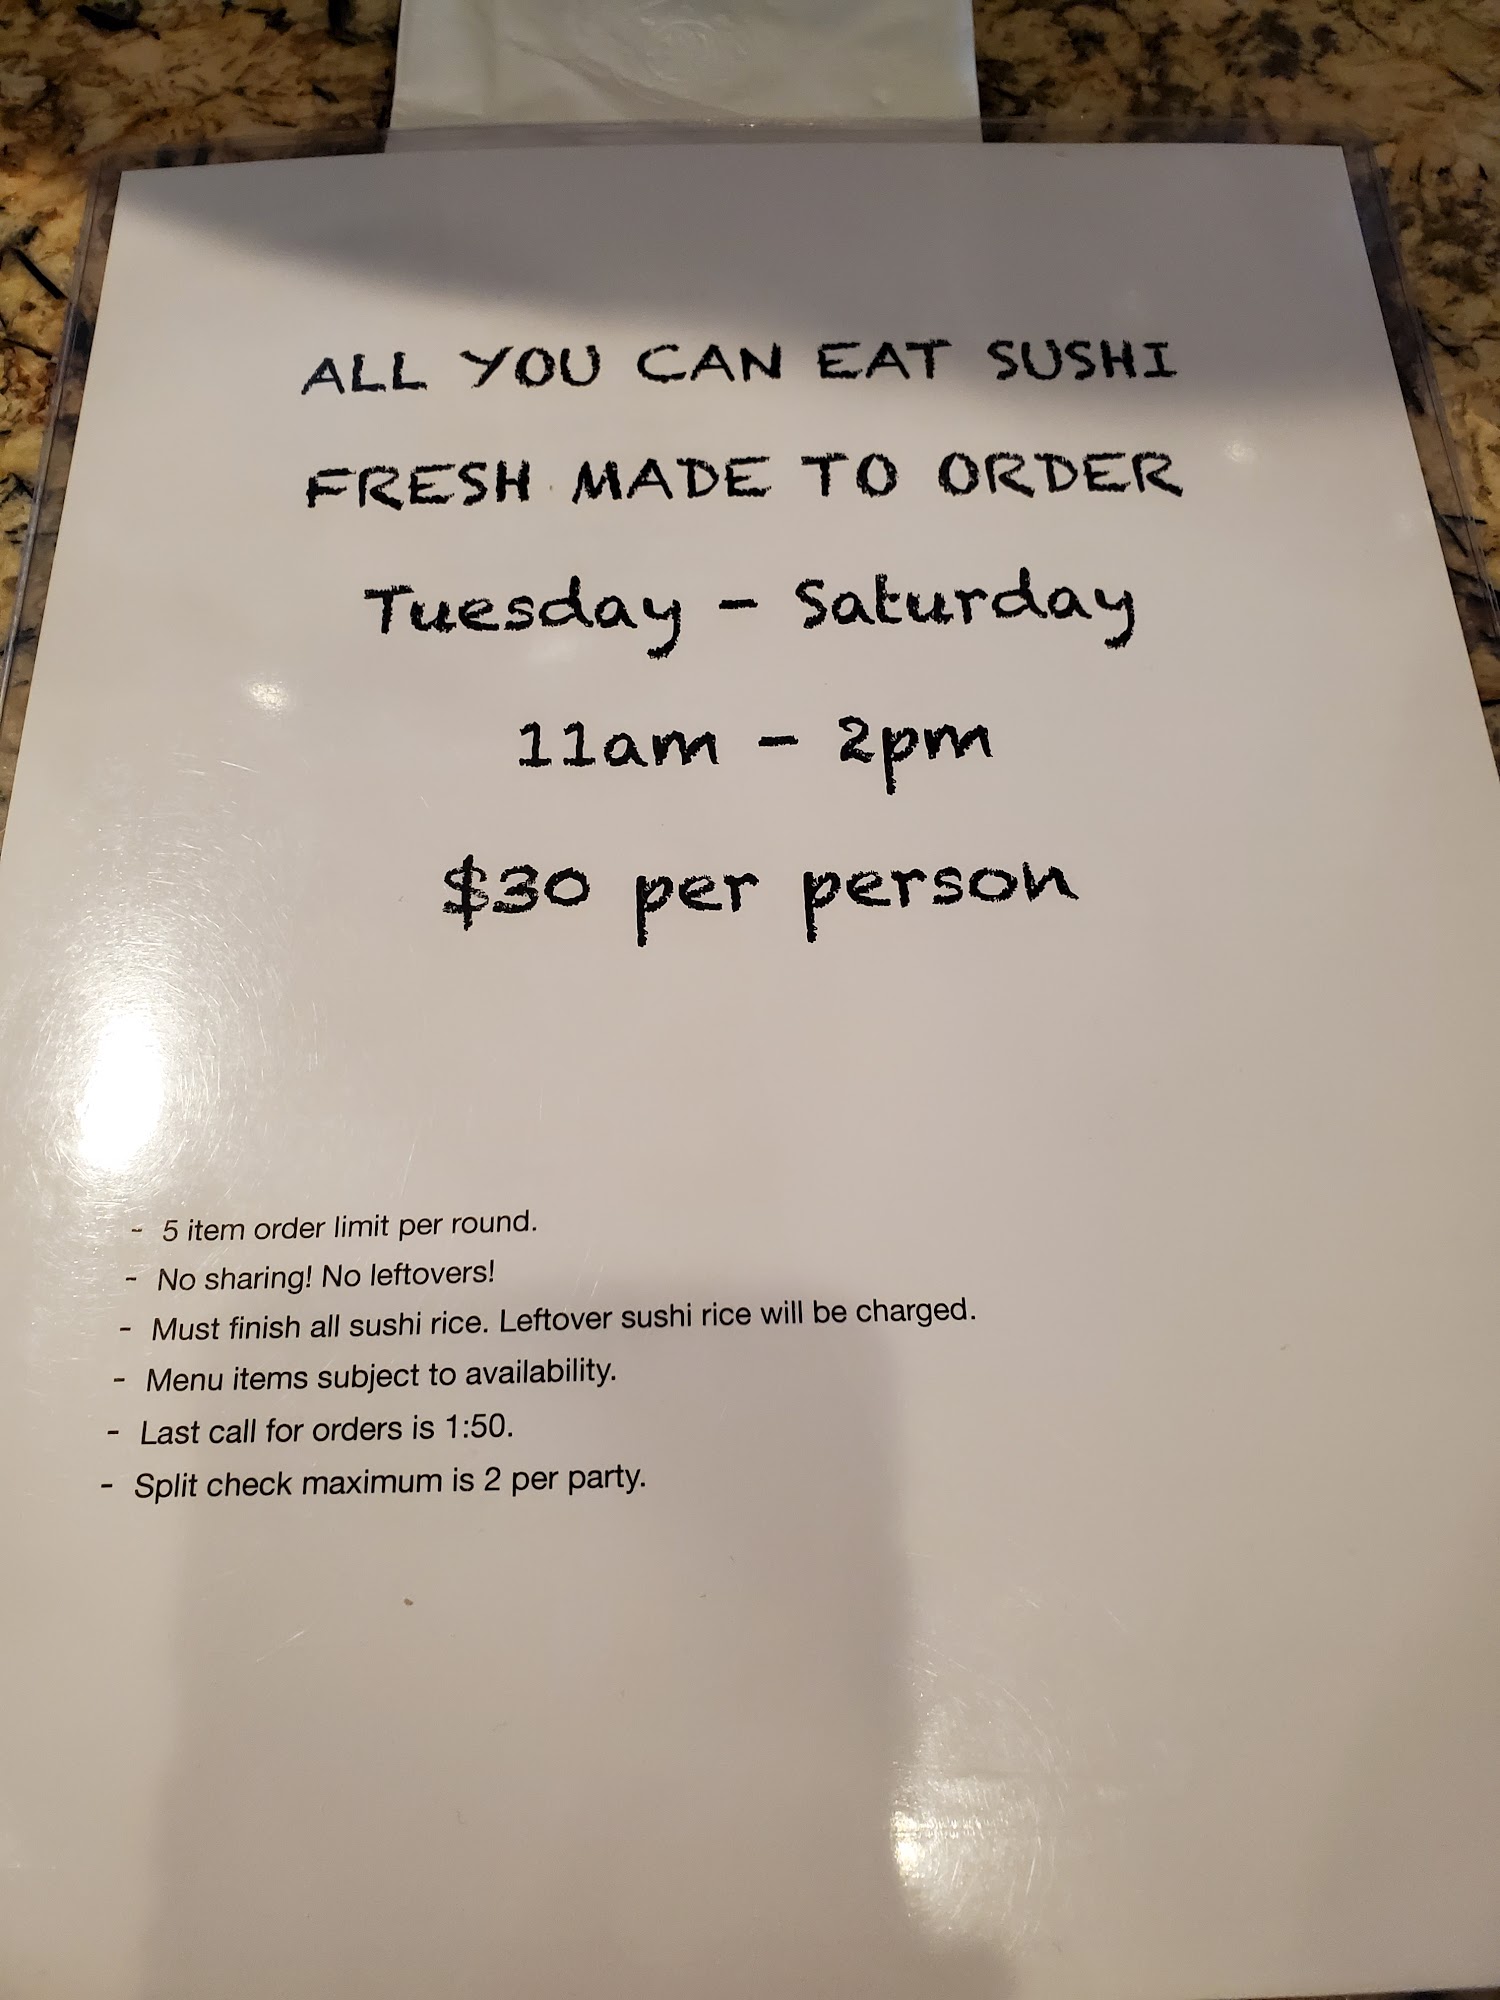 ALL YOU CAN EAT SUSHI
FRESH MADE TO ORDER
Tuesday - Saturday
11am - 2pm
$30 per person
- 5 item order limit per round.
- No sharing! No leftovers!
- Must finish all sushi rice. Leftover sushi rice will be charged.
- Menu items subject to availability.
- Last call for orders is 1:50.
- Split check maximum is 2 per party.